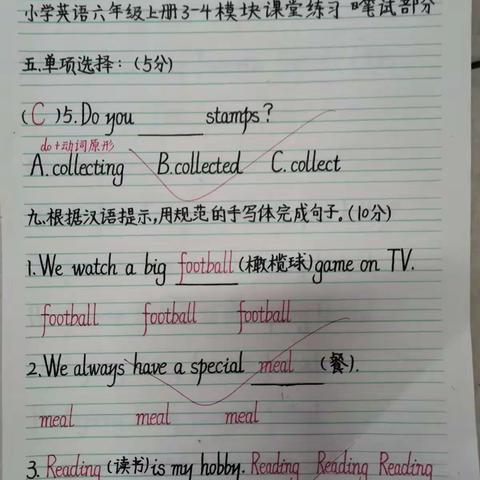 小学英语六年级上册3-4模块课堂练习 笔试部分
五.单项选择:(5分)
(C)5.Do you ______ stamps?
do+动词原形
A.collecting B.collected C.collect
九.根据汉语提示,用规范的手写体完成句子。(10分)
1.We watch a big football (橄榄球)game on TV.
football football football
2.We always have a special meal (餐).
meal meal meal
3. Reading (读书)is my hobby. Reading Reading Reading